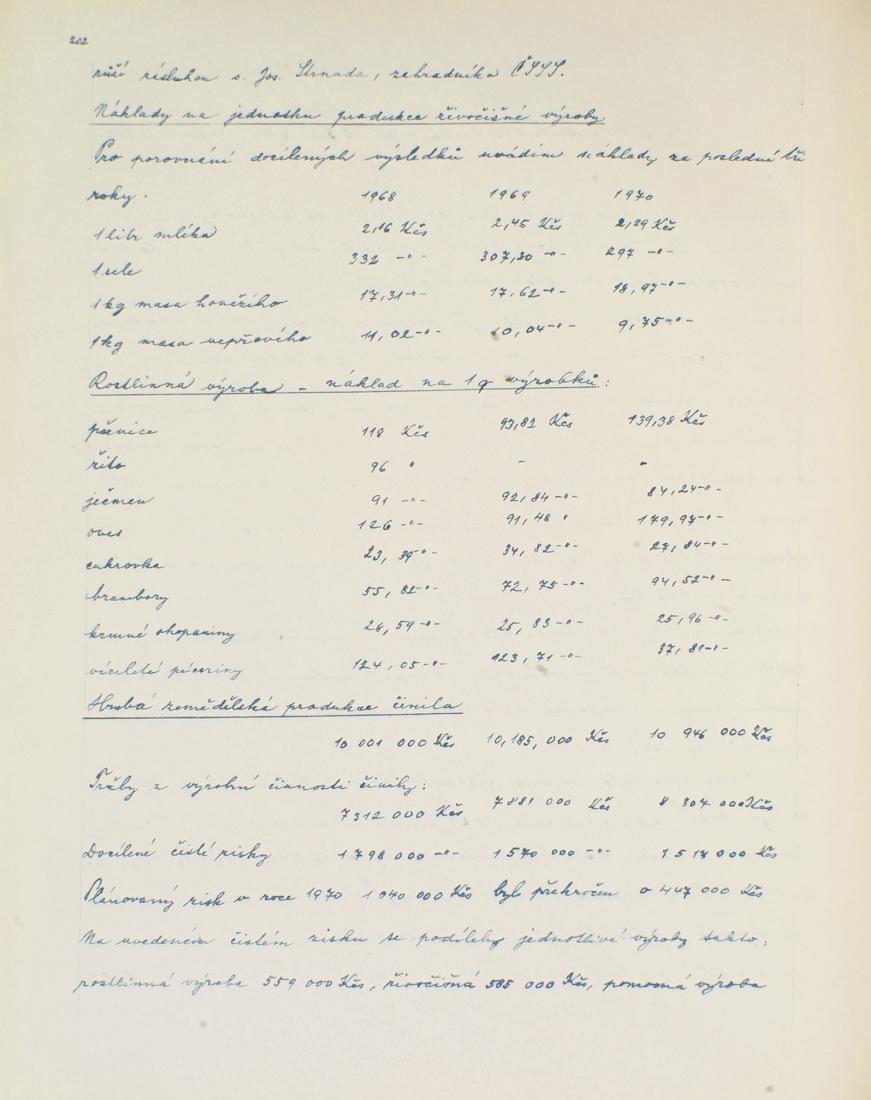 202
růží zásluhou s. Jos. Strnada, zahradníka ČSSS.
Náklady na jednotku produkce živočišné výroby
Pro porovnání docílených výsledků uvádím náklady za poslední tři
roky. 1968 1969 1970
1 litr mléka 2,16 Kčs 2,45 Kčs 2,29 Kčs
1 sele 332 -"- 307,30 -"- 297 -"-
1 kg masa hovězího 17,31 -"- 17,62 -"- 18,97 -"-
1 kg masa vepřového 11,02 -"- 10,04 -"- 9,75 -"-
Rostlinná výroba - náklad na 1 q výrobků:
pšenice 118 Kčs 93,82 Kčs 139,38 Kčs
žito 96 " - -
ječmen 91 -"- 92,84 -"- 84,24 -"-
oves 126 -"- 91,48 " 179,97 -"-
cukrovka 23,39 -"- 34,82 -"- 27,84 -"-
brambory 55,82 -"- 72,75 -"- 94,52 -"-
krmné okopaniny 28,59 -"- 25,83 -"- 25,96 -"-
víceleté pícniny 124,05 -"- 123,71 -"- 37,81 -"-
Hrubá zemědělská produkce činila
10 001 000 Kčs 10,185,000 Kčs 10 946 000 Kčs
Tržby z výrobní činnosti činily:
7 312 000 Kčs 7 881 000 Kčs 8 304 000 Kčs
Docílené čisté zisky 1 798 000 -"- 1 570 000 -"- 1 517 000 Kčs
Plánovaný zisk v roce 1970 1 040 000 Kčs byl překročen o 447 000 Kčs
Na uvedeném čistém zisku se podílely jednotlivé výroby takto:
rostlinná výroba 559 000 Kčs, živočišná 585 000 Kčs, pomocná výroba